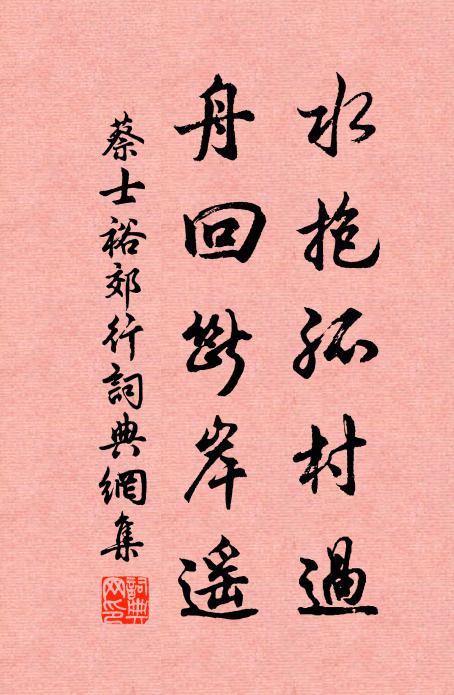 水抱孤村過
舟回斷岸遥
蔡士裕郊行詞典網集
詞典網印